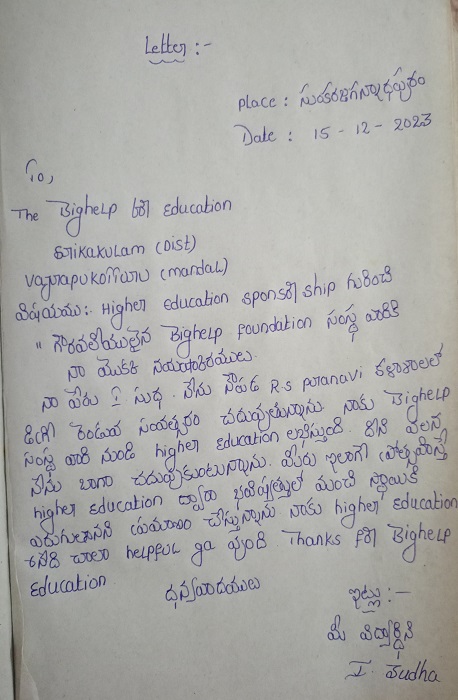 Letter :-
place : సుందరజగన్నాధపురం
Date : 15 - 12 - 2023
To,
The BigheLp for Education
Srikakulam (Dist)
Vajrapukotturu (mandal)
విషయము :- Higher Education sponsor ship గురించి
" గౌరవనీయులైన BigheLp Foundation సంస్థ వారికి
నా యొక్క నమస్కారములు.
నా పేరు I సుధ. నేను R.s కళాశాలలో
డిగ్రీ రెండవ సంవత్సరం చదువుతున్నాను. నాకు BigheLp
సంస్థ వారి నుండి higher Education లభిస్తుంది. దీని వలన
నేను బాగా చదువుకుంటున్నాను. మీరు ఇలాగే ప్రోత్సహిస్తే
higher education ద్వారా భవిష్యత్తులో మంచి స్థాయికి
చేస్తున్నాను నాకు higher Education
అనేది చాలా helpFuL ga వుంది Thanks for BigheLp
Education
ధన్యవాదములు
ఇట్లు :-
మీ విద్యార్థిని
I. Sudha